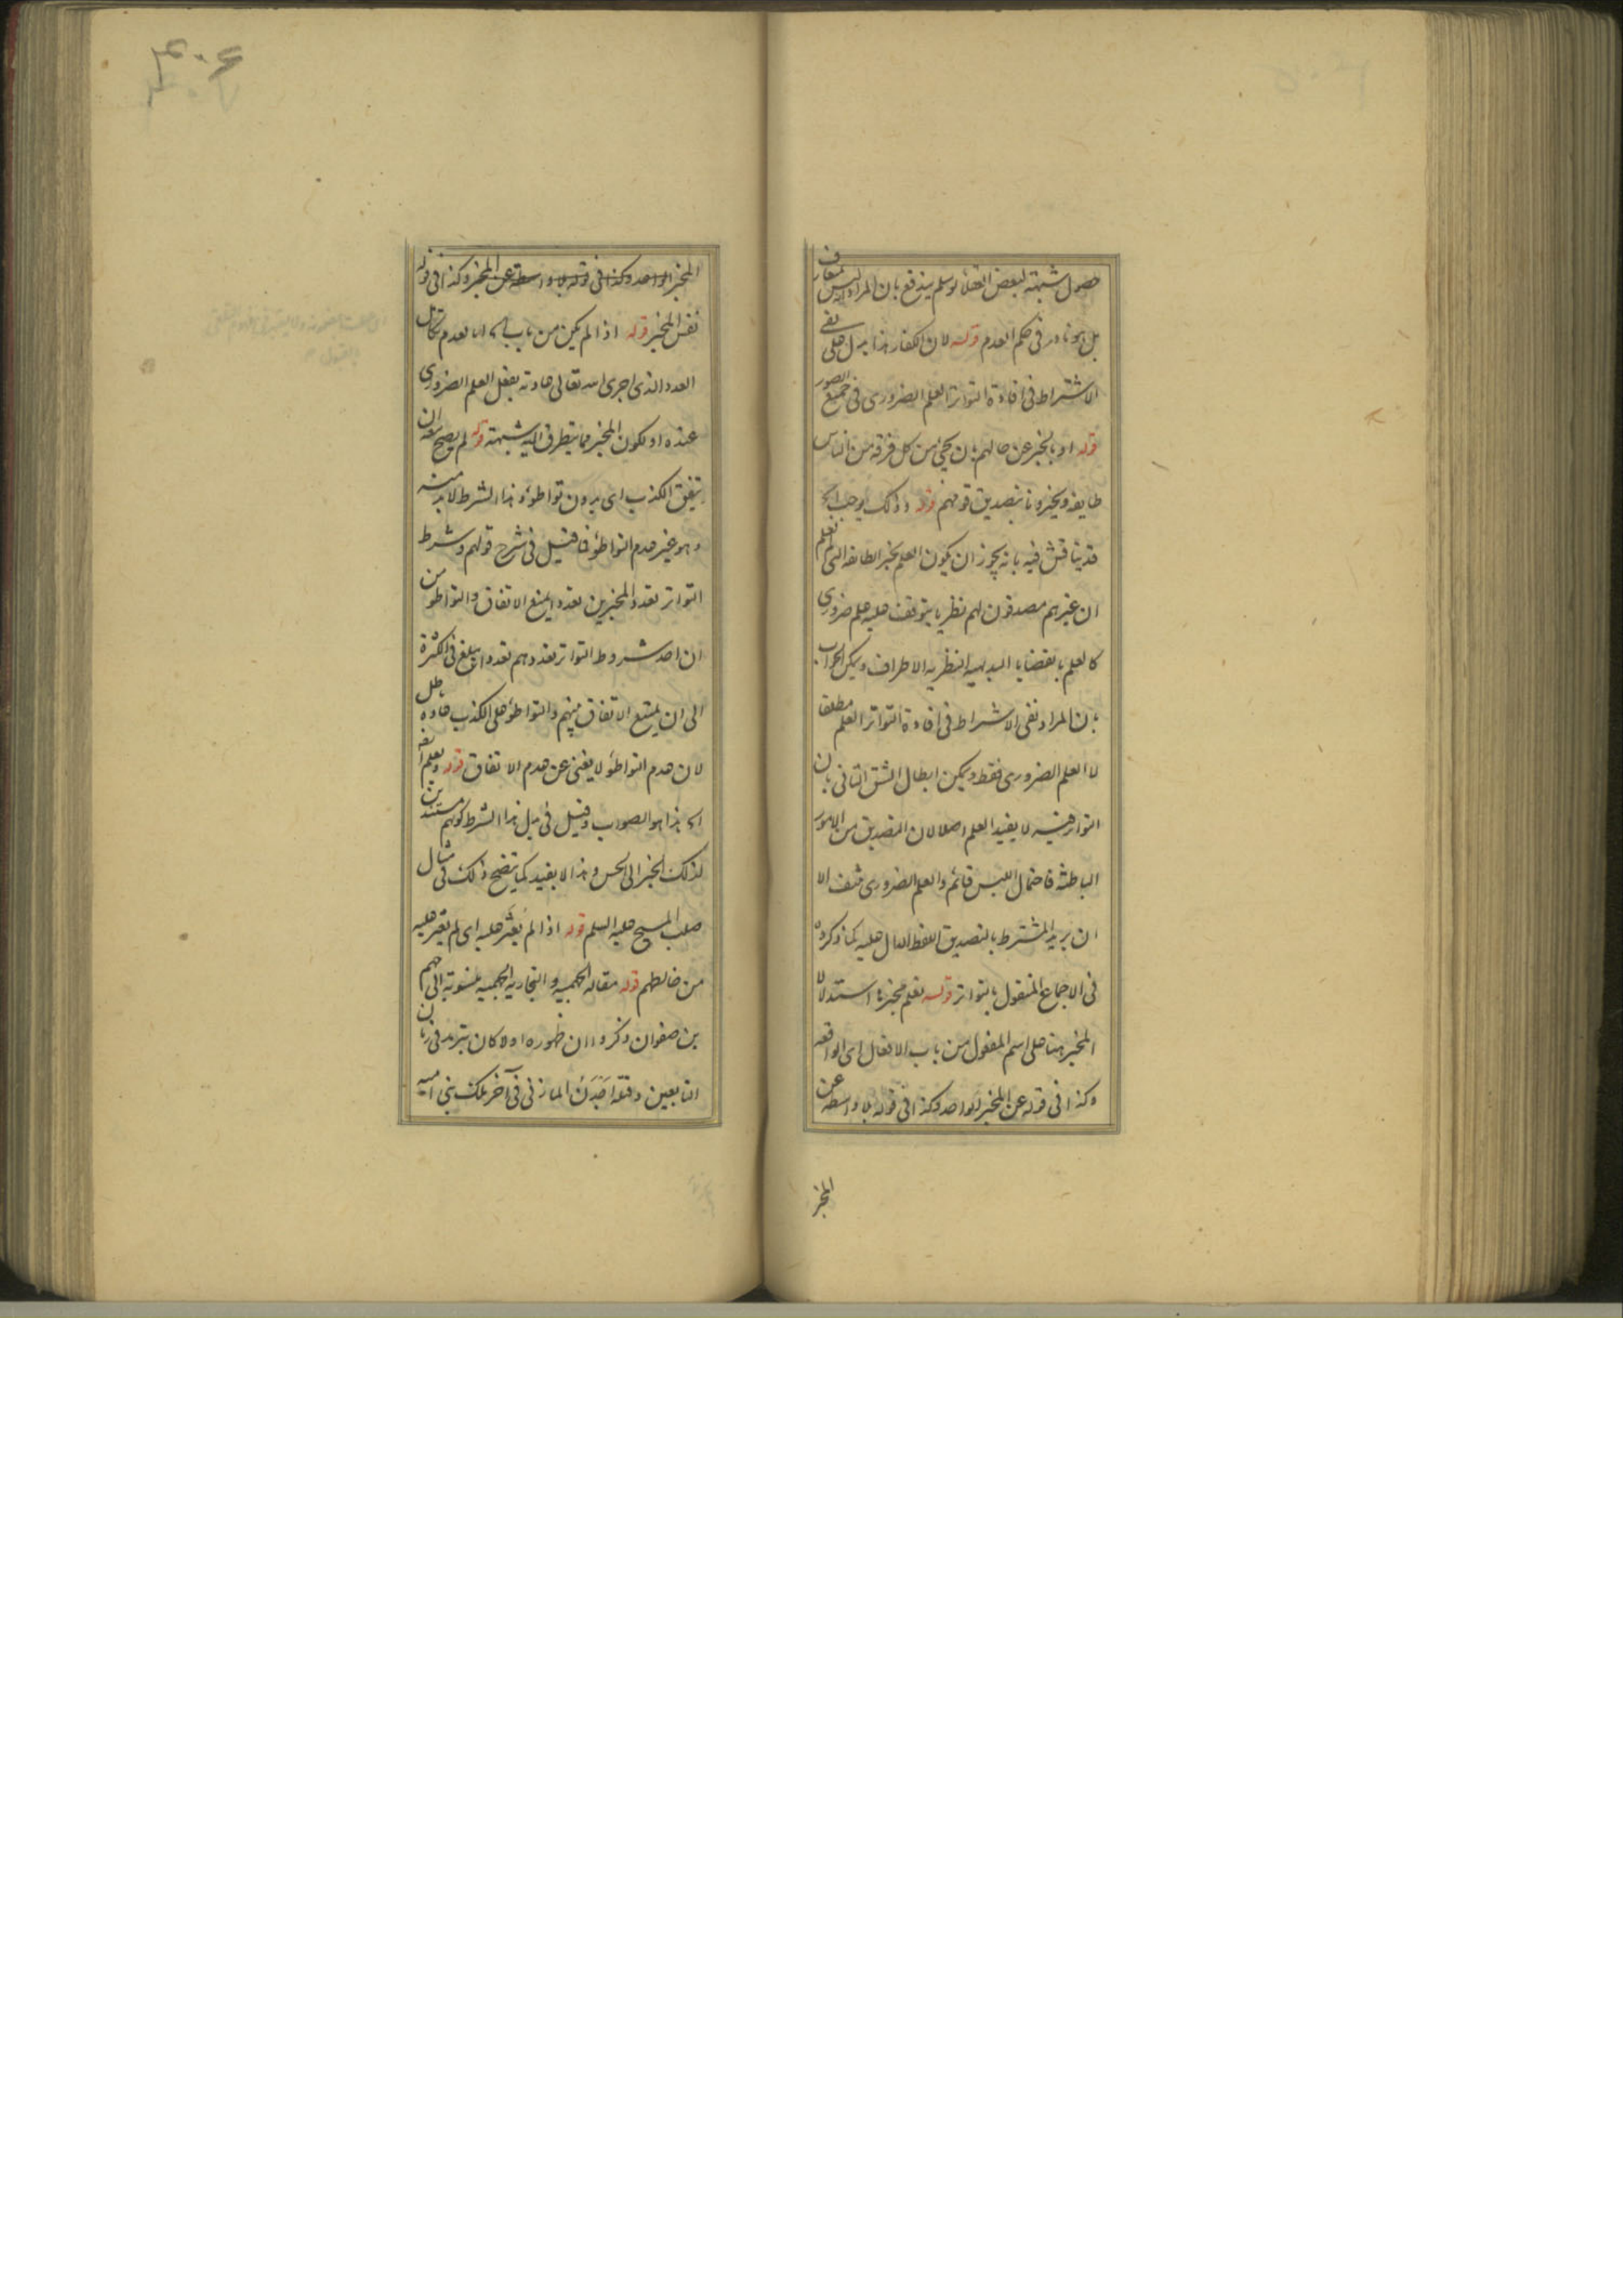 حصول شبهة لبعض العقلا ولو سلم يندفع بان المراد ليس بمعارف
بل هو نادر في حكم العدم قوله لان الكفار هذا يدل على نفي
الاشتراط في افادة التواتر العلم الضروري في جميع الصور
قوله او بالخبر عن حالهم بان يجئ من كل فرقة من الناس
طايفة ويخبرونا بتصديق قومهم قوله وذلك يوجب الخ
قد يناقش فيه بانه يجوز ان يكون العلم بخبر الطائفة التي نعلم
ان غيرهم مصدقون لهم نظريا يتوقف عليه علم ضروري
كالعلم بالقضايا البديهيه النظريه الاطراف ويمكن الجواب
بان المراد نفي الاشتراط في افادة التواتر العلم مطلقا
لا العلم الضروري فقط ويمكن ابطال الشق الثاني بان
التواتر فيه لا يفيد العلم اصلا لان التصديق من الامور
الباطنة فاحتمال اللبس قائم والعلم الضروري منتف الا
ان يريد المشترط بالتصديق اللفظ الدال عليه كما ذكروه
في الاجماع المنقول بالتواتر قوله نعلم مخبره استدلالا
المخبر هنا على اسم المفعول من باب الافعال اي الواقعه
وكذا في قوله عن المخبر الواحد وكذا في قوله بلا واسطه عن
المخبر
٣٠٦
المخبر الواحد وكذا في قوله بلا واسطة عن المخبر وكذا في قوله
نفس المخبر قوله اذا لم يكن من باب اما لعدم تكامل
العدد الذي اجرى الله تعالى عادته بفعل العلم الضروري
عنده او لكون المخبر مما يتطرق اليه شبهة قوله لم يصح منه ان
يتفق الكذب اي بدون تواطؤ وهذا الشرط لا بد منه
وهو غير عدم التواطؤ فما قيل في شرح قولهم وشرط
التواتر تعدد المخبرين تعددا يمنع الاتفاق والتواطؤ من
ان احد شروط التواتر تعددهم تعددا يبلغ في الكثرة
الى ان يمتنع الاتفاق بينهم والتواطؤ على الكذب عادة باطل
لان عدم التواطؤ لا يغني عن عدم الاتفاق قوله ويعلم انه
هذا هو الصواب وقيل في بدل هذا الشرط كونهم مستندين
لذلك الخبر الى الحس وهذا لا يفيد كما يتضح ذلك في مثال
صلب المسيح عليه السلم قوله اذا لم يعثر عليه اي لم يعثر عليه
من خالطهم قوله مقالة الجهمية والنجارية الجهمية منسوبة الى جهم
بن صفوان وذكروا ان ظهوره اولا كان بترمد في زمان
التابعين وقتله احمد المازني في آخر ملك بني اميه